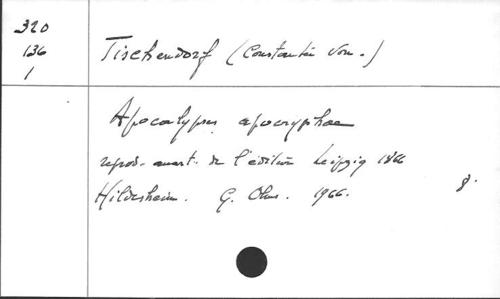 320
136
1
Tischendorf (Constantin von.)
Apocalypses apocryphae
reprod. anast. de l'édition Leipzig 1866
Hildesheim. G. Olms. 1966.
8.